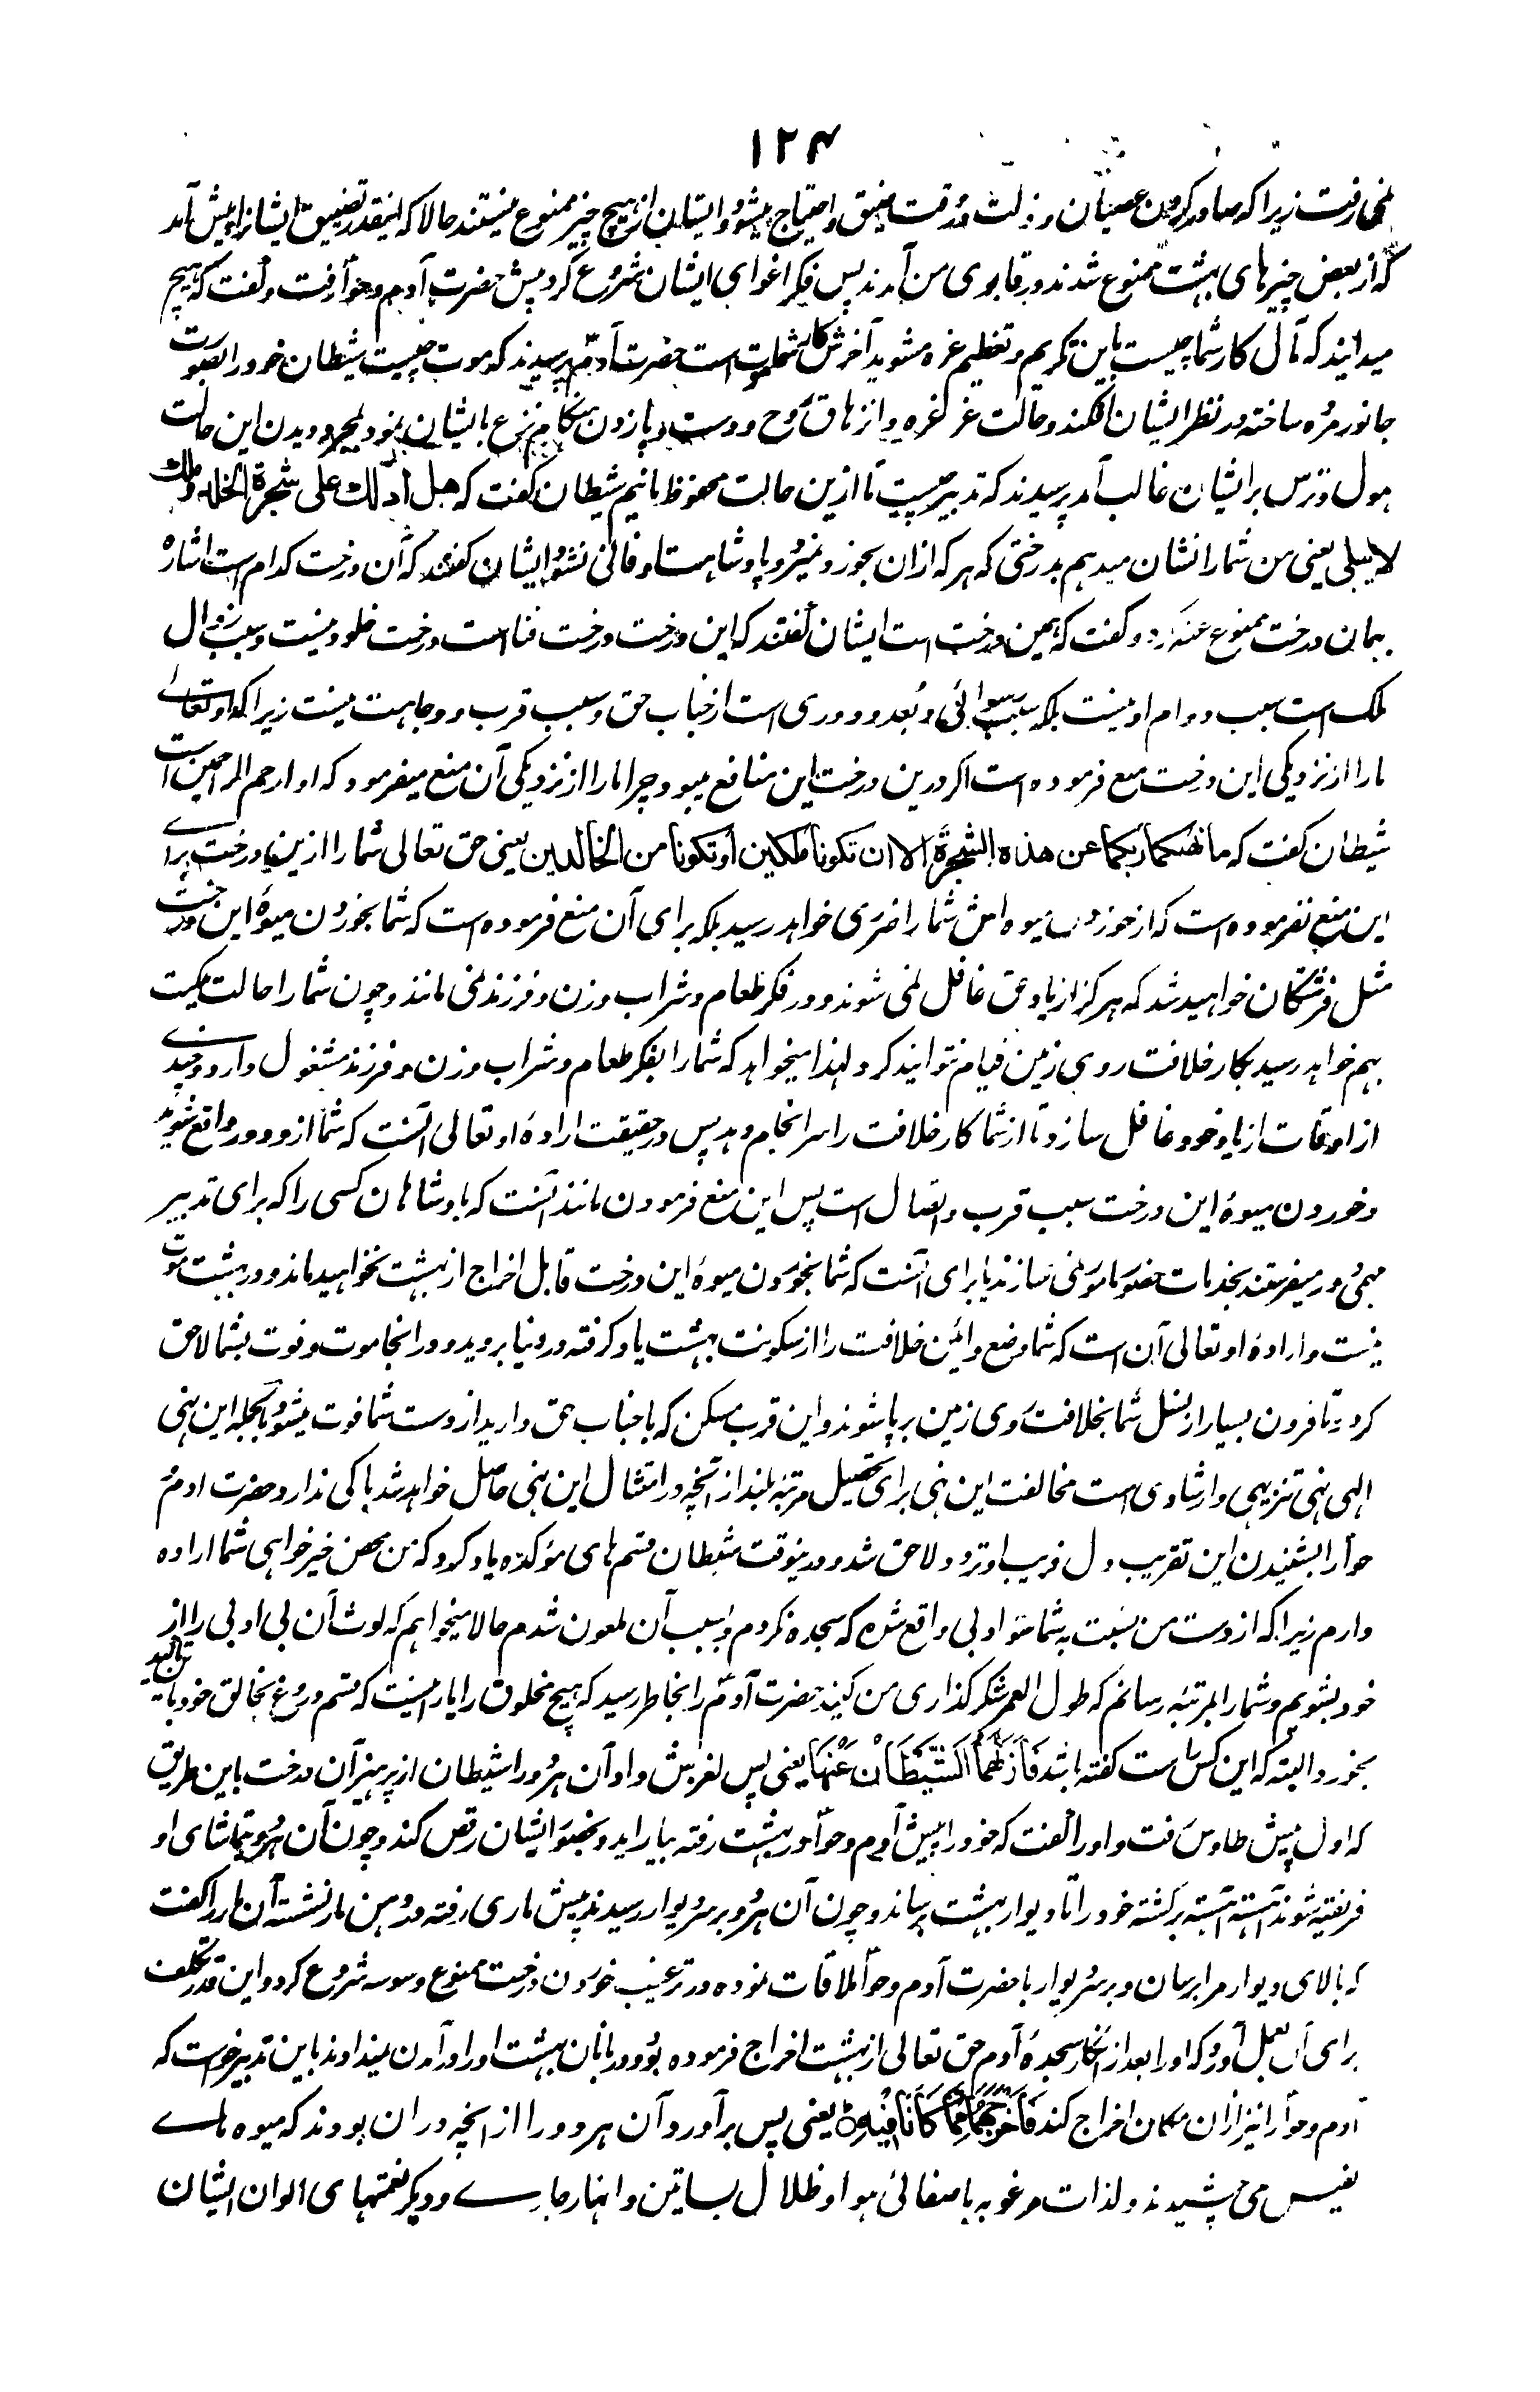 ۱۲۴
نمی رفت زیرا که صادر کردن عصیان و زلت در وقت ضیق و احتیاج میشود و ایشان از هیچ چیز ممنوع نیستند حالا که اینقدر تضییق ایشانرا پیش آمد
که از بعض چیزهای بهشت ممنوع شدند در قابوی من آمدند پس فکر اغوای ایشان شروع کرد پیش حضرت آدم و حوا رفت و گفت که هیچ
میدانید که مآل کار شما چیست باین تکریم و تعظیم غره مشوید آخرش کار شما موت است حضرت آدم پرسیدند که موت چیست شیطان خود را بصورت
جانور مرده ساخته در نظر ایشان افکند و حالت غرغره و انزهاق روح و دست و پا زدن هنگام نزع بایشان نمود بمجرد دیدن این حالت
هول و ترس بر ایشان غالب آمد پرسیدند که تدبیر چیست تا ازین حالت محفوظ مانیم شیطان گفت که هل ادلك علی شجرة الخلد و ملك
لا یبلی یعنی من شما را نشان میدهم بدرختی که هر که ازان بخورد نمیرد و پادشاهت او فانی نشود ایشان گفتند که آن درخت کدام است اشاره
بهمان درخت ممنوع عنه کرد و گفت که همین درخت است ایشان گفتند که این درخت درخت فنا است درخت خلود نیست و سبب زوال
ملک است سبب دوام او نیست بلکه سبب رسوائی و بعد و دوری است از جناب حق و سبب قرب و وجاهت نیست زیرا که او تعالے
ما را از نزدیکی این درخت منع فرموده است اگر درین درخت این منافع میبود چرا ما را از نزدیکی آن منع میفرمود که او ارحم الراحمین است
شیطان گفت که ما نهىكما ربكما عن هذه الشجرة الا ان تكونا ملكين او تكونا من الخالدين یعنی حق تعالی شما را ازین درخت براے
این منع نفرموده است که از خوردن میوه اش شما را ضرری خواهد رسید بلکه برای آن منع فرموده است که شما بخوردن میوهٔ این درخت
مثل فرشتگان خواهید شد که هرگز از یاد حق غافل نمی شوند و در فکر طعام و شراب و زن و فرزند نمی مانند و چون شما را حالت ملکیت
بهم خواهد رسید بکار خلافت روی زمین قیام نتوانید کرد لهذا میخواهد که شما را بفکر طعام و شراب و زن و فرزند مشغول دارد و چندے
از اوقات از یاد خود غافل سازد تا از شما کار خلافت را سر انجام دهد پس در حقیقت ارادهٔ او تعالی آنست که شما ازو دور واقع شوید
و خوردن میوهٔ این درخت سبب قرب و اتصال است پس این منع فرمودن مانند آنست که بادشاهان کسی را که برای تدبیر
مهمی دور میفرستند بخدمات حضور مامور نمی سازند یا برای آنست که شما بخوردن میوهٔ این درخت قابل اخراج از بهشت نخواهید ماند و در بهشت موت
نیست و ارادهٔ او تعالی آن است که شما وضع و آئین خلافت را از سکونت بهشت یاد گرفته در دنیا بروید و در آنجا موت و فوت بشما لاحق
گردد تا قرون بسیار از نسل شما بخلافت روی زمین برپا شوند و این قرب ممکن که با جناب حق دارید از دست شما فوت میشود بالجمله این نهی
الهی نهی تنزیهی و ارشادی است مخالفت این نهی برای تحصیل مرتبه بلند از آنچه در امتثال این نهی حاصل خواهد شد باکی ندارد حضرت آدم و
حوا را بشنیدن این تقریب دل فریب او تردد لاحق شد و درینوقت شیطان قسم های مؤکده یاد کرد که من محض خیر خواهی شما اراده
دارم زیرا که از دست من نسبت به شما سوء ادبی واقع شده که سجده نکردم و بسبب آن ملعون شدم حالا میخواهم که لوث آن بی ادبی را از
خود بشویم و شما را بمرتبه رسانم که طول العمر شکر گذاری من کنید حضرت آدم را بخاطر رسید که هیچ مخلوق را یارا نیست که قسم دروغ بخالق خود باین تاکید
بخورد البته که این کس راست گفته باشد فَاَزَلَّهُمَا الشَّيْطَانُ عَنْهَا یعنی پس لغزش داد آن هر دو را شیطان از پرهیز آن درخت باین طریق
که اول پیش طاوس رفت و او را گفت که خود را پیش آدم و حوا در بهشت رفته بیاراید و بحضور ایشان رقص کند و چون آن هر دو بتماشای او
فریفته شوند آهسته آهسته برگشته خود را تا دیوار بهشت رساند و چون آن هر دو بر سر دیوار رسیدند پیش ماری رفته در دهن مار نشسته آن مار را گفت
که بالای دیوار مرا برسان و بر سر دیوار با حضرت آدم و حوا ملاقات نموده در ترغیب خوردن درخت ممنوع وسوسه شروع کرد و این قدر تکلف
برای آن بعمل آورد که او را بعد از انکار سجدهٔ آدم حق تعالی از بهشت اخراج فرموده بود و دربانان بهشت او را در آمدن نمیدادند باین تدبیر خواست که
آدم و حوا را نیز ازان مکان اخراج کند فَاَخْرَجَهُمَا مِمَّا كَانَا فِيْهِ یعنی پس برآورد آن هر دو را از آنچه دران بودند که میوه هاے
نفیس می چشیدند و لذات مرغوبه با صفائی هوا و ظلال بساتین و انهار جاریے و دیگر نعمتهای الوان ایشان